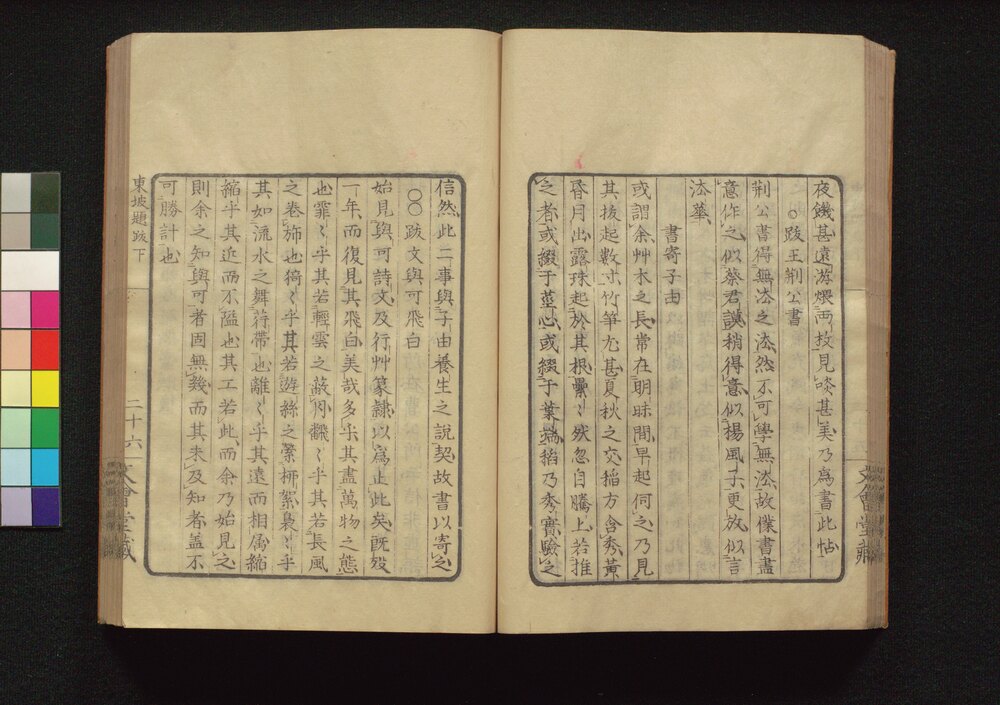 夜饑甚遠游煨兩枝見啖甚美乃爲書此帖
○跋王荆公書
荆公書得無法之法然不可學無法故僕書盡
意作之似蔡君謨稍得意似楊風子更放似言
法華
書寄子由
或謂余艸木之長常在明昧間早起伺之乃見
其拔起數寸竹笋尤甚夏秋之交稻方含秀黃
昏月出露珠起於其根纍〻然忽自騰上若推
之者或綴于莖心或綴于葉端稻乃秀實驗之
信然此二事與子由養生之說契故書以寄之
○○跋文與可飛白
始見與可詩文及行艸篆隸以爲止此矣旣歿
一年而復見其飛白美哉多乎其盡萬物之態
也霏〻乎其若輕雲之蔽月飜〻乎其若長風
之卷旆也猗〻乎其若遊絲之縈柳絮裊〻乎
其如流水之舞荇帶也離〻乎其遠而相属縮
縮乎其近而不隘也其工若此而余乃始見之
則余之知與可者固無幾而其未及知者盖不
可勝計也
東坡題跋下
二十六
文會堂藏
文會堂藏